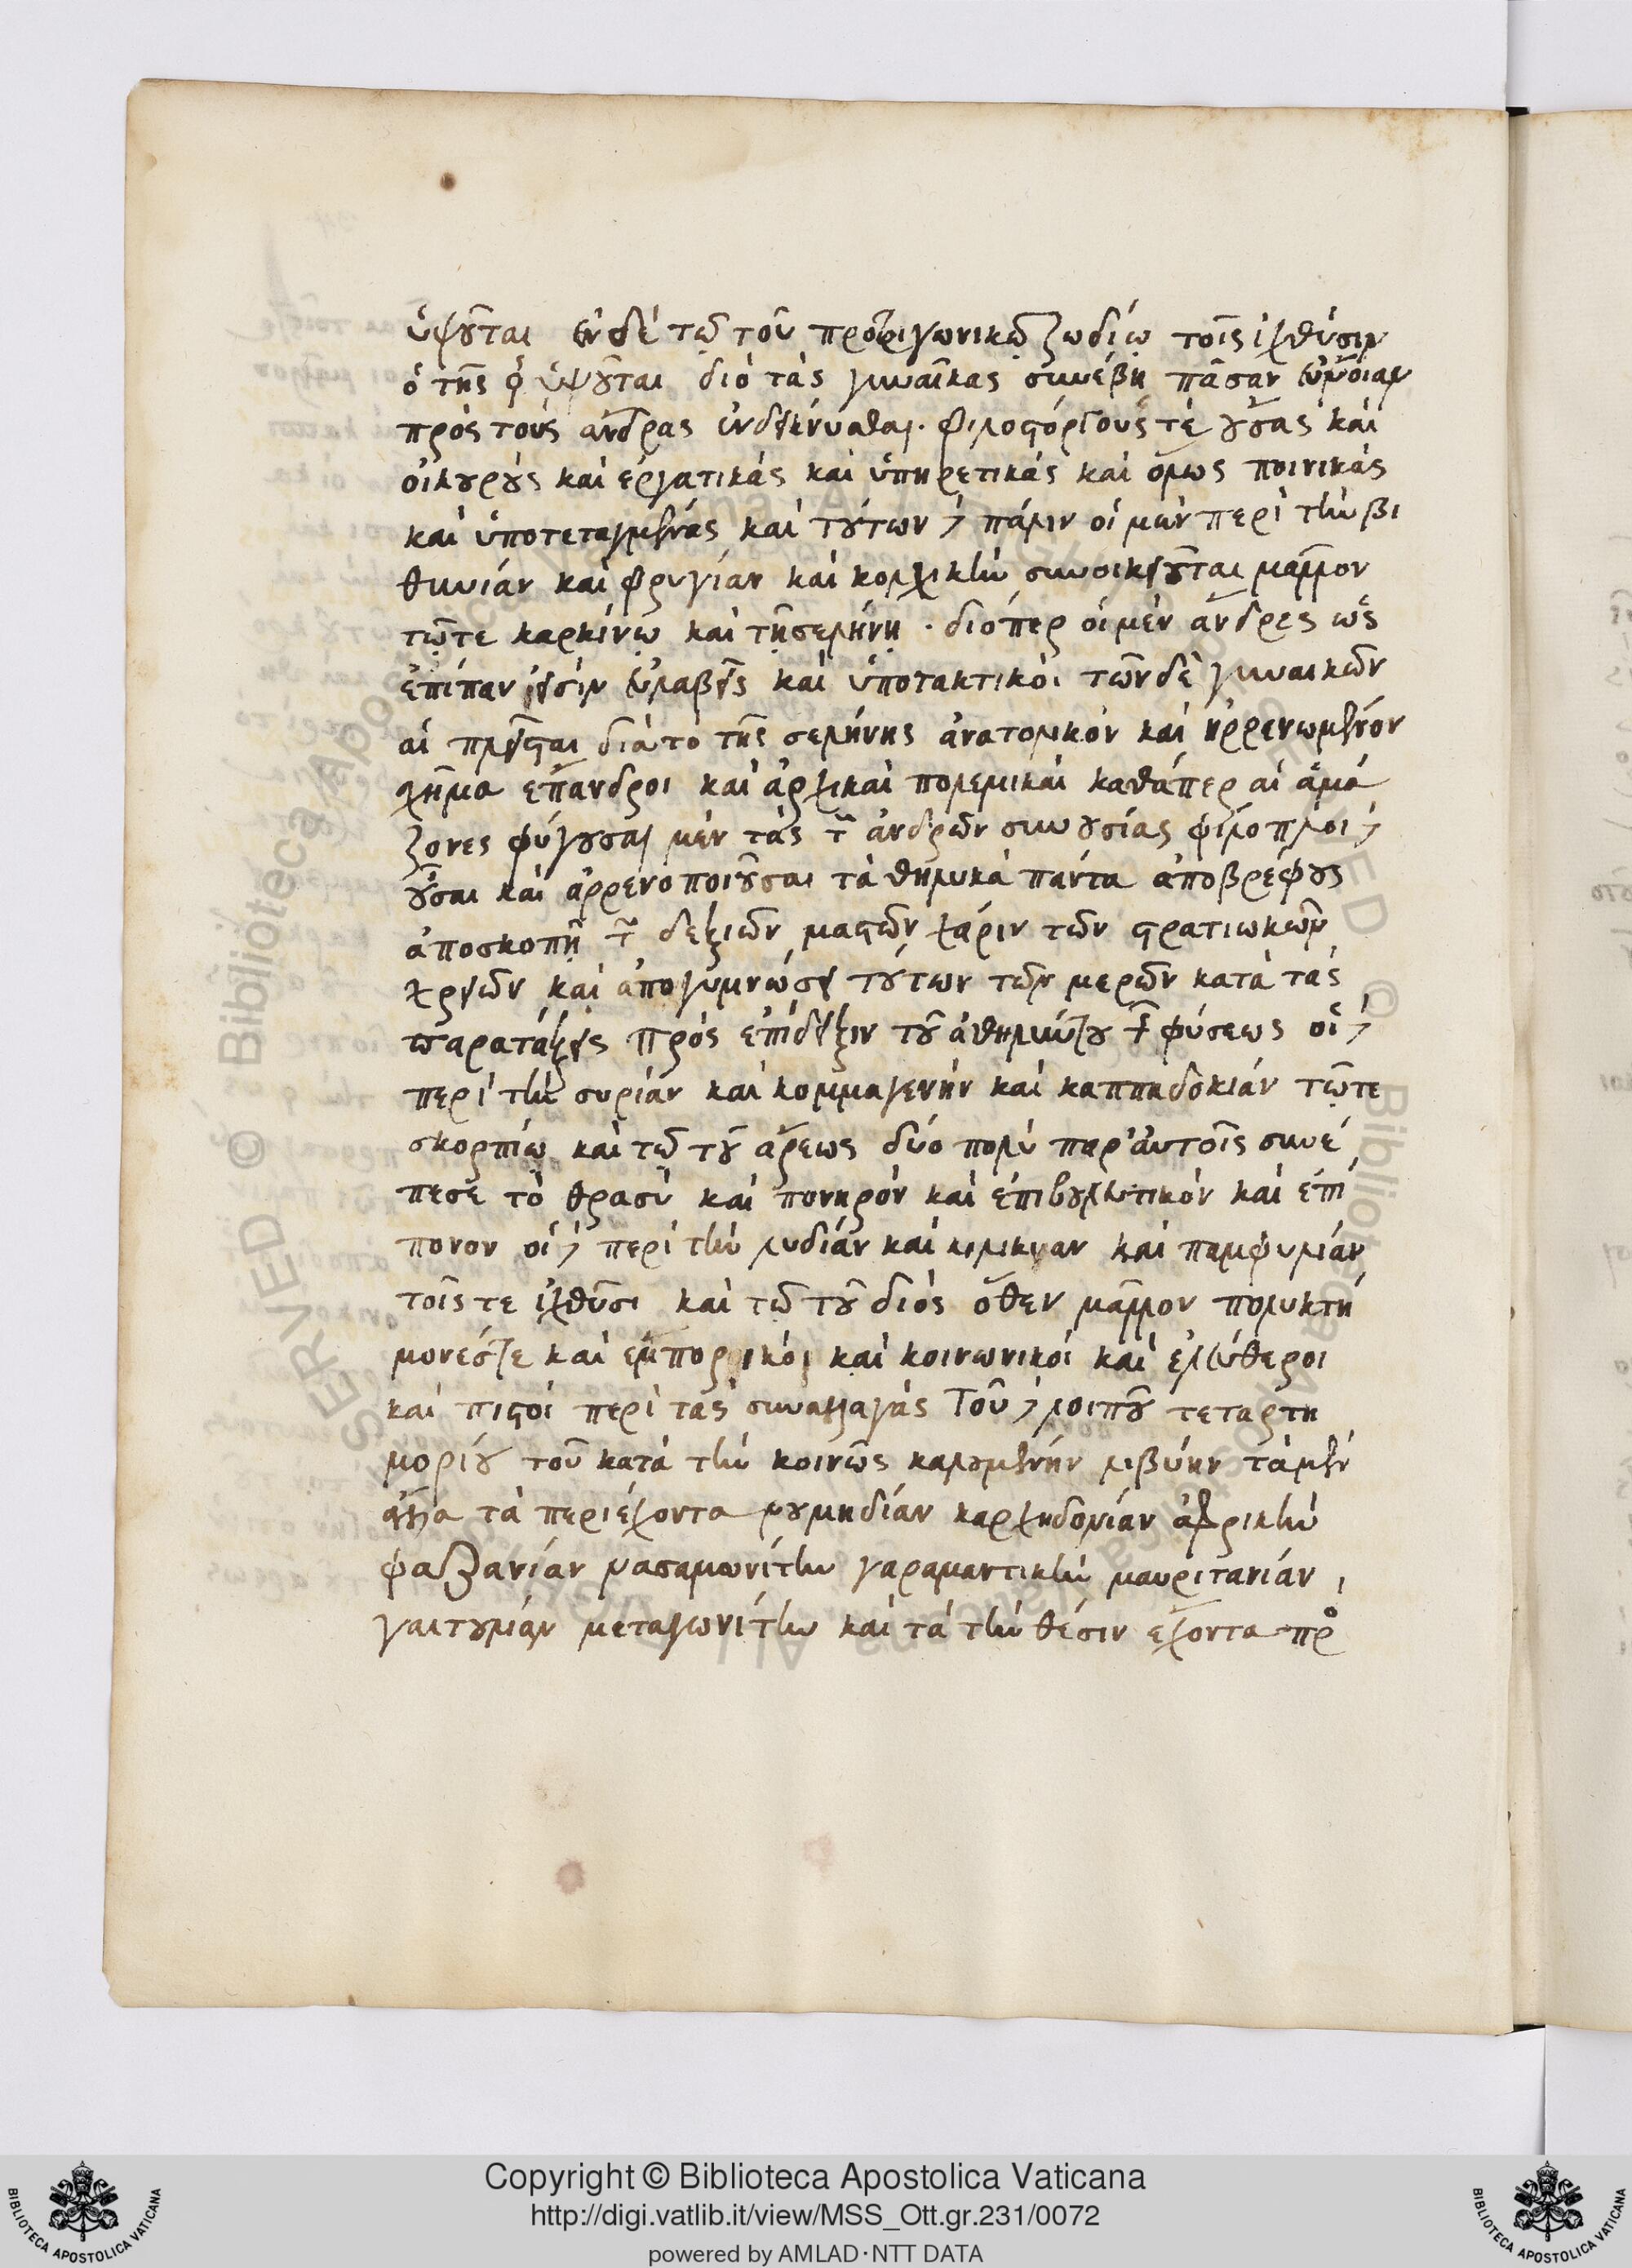 ὑψοῦται ἐν δὲ τῷ τοῦ προτριγωνικῷ ζωδίῳ τοῖς ἰχθύσιν
ὁ τῆς ♀ ὑψοῦται διὸ τὰς γυναῖκας συνέβη πᾶσαν εὔνοιαν
πρὸς τοὺς ἄνδρας ἐνδείκνυσθαι· φιλοστόργους τὲ οὔσας καὶ
οἰκουροὺς καὶ ἐργατικάς καὶ ὑπηρετικάς καὶ ὅλως ποινικάς
καὶ ὑποτεταγμένας καὶ τούτων δὲ πάλιν οἱ μὲν περὶ τὴν βι
θυνίαν καὶ φρυγίαν καὶ κολχικὴν συνοικειοῦται μᾶλλον
τῷ τε καρκίνῳ καὶ τῇ σελήνῃ· διόπερ οἱ μὲν ἄνδρες ὡς
ἐπίπαν εἰσὶν εὐλαβεῖς καὶ ὑποτακτικοὶ τῶν δὲ γυναικῶν
αἱ πλεῖσται διὰ τὸ τῆς σελήνης ἀνατολικόν καὶ ἠρρενωμένον
σχῆμα ἔπανδροι καὶ ἀρχικαὶ πολεμικαὶ καθάπερ αἱ ἀμα
ζόνες φύγουσαι μὲν τὰς τῶν ἀνδρῶν συνουσίας φίλοπλοι δὲ
οὖσαι καὶ ἀρρενοποιοῦσαι τὰ θηλυκὰ πάντα ἀπὸ βρέφους
ἀποσκοπῇ τῶν δεξιῶν μαστῶν χάριν τῶν στρατιωκῶν
χρειῶν καὶ ἀπογυμνώσει τούτων τῶν μερῶν κατὰ τὰς
παρατάξεις πρὸς ἐπίδειξιν τοῦ ἀθηλύντου τῆς φύσεως οἱ δὲ
περὶ τὴν συρίαν καὶ κομμαγενήν καὶ καππαδοκίαν τῷ τε
σκορπίῳ καὶ τῷ τοῦ ἄρεως δύο πολὺ παρ' αὐτοῖς συνέ
πεσε τὸ θρασὺ καὶ πονηρόν καὶ ἐπιβουλευτικόν καὶ ἐπί
πονον οἱ δὲ περὶ τὴν λυδίαν καὶ κιλικιαν καὶ παμφυλίαν
τοῖς τε ἰχθῦσι καὶ τῷ τοῦ διός ὅθεν μᾶλλον πολυκτή
μονές τε καὶ ἐμπορικοὶ καὶ κοινωνικοὶ καὶ ἐλεύθεροι
καὶ πιστοὶ περὶ τὰς συναλλαγάς Τοῦ δὲ λοιποῦ τεταρτη
μορίου τοῦ κατὰ τὴν κοινῶς καλουμένην λιβύην τὰ μὲν
ἄλλα τὰ περιέχοντα νουμηδίαν καρχηδονίαν ἀφρικὴν
φαζανίαν νασαμωνίτην γαραμαντικὴν μαυριτανίαν,
γαιτουλίαν μεταγωνίτην καὶ τὰ τὴν θέσιν ἔχοντα πρὸ
Copyright © Biblioteca Apostolica Vaticana
http://digi.vatlib.it/view/MSS_Ott.gr.231/0072
powered by AMLAD·NTT DATA
BIBLIOTECA APOSTOLICA VATICANA
BIBLIOTECA APOSTOLICA VATICANA